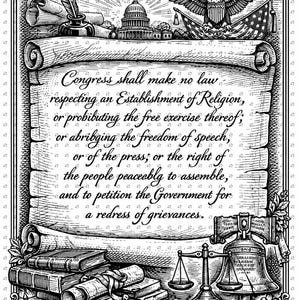 Congress shall make no law
respecting an Establishment of Religion,
or probibuting the free exercise thereof;
or abribging the freedom of speech,
or of the press; or the right of
the people peaceablg to assemble,
and to petition the Government for
a redress of grievances.